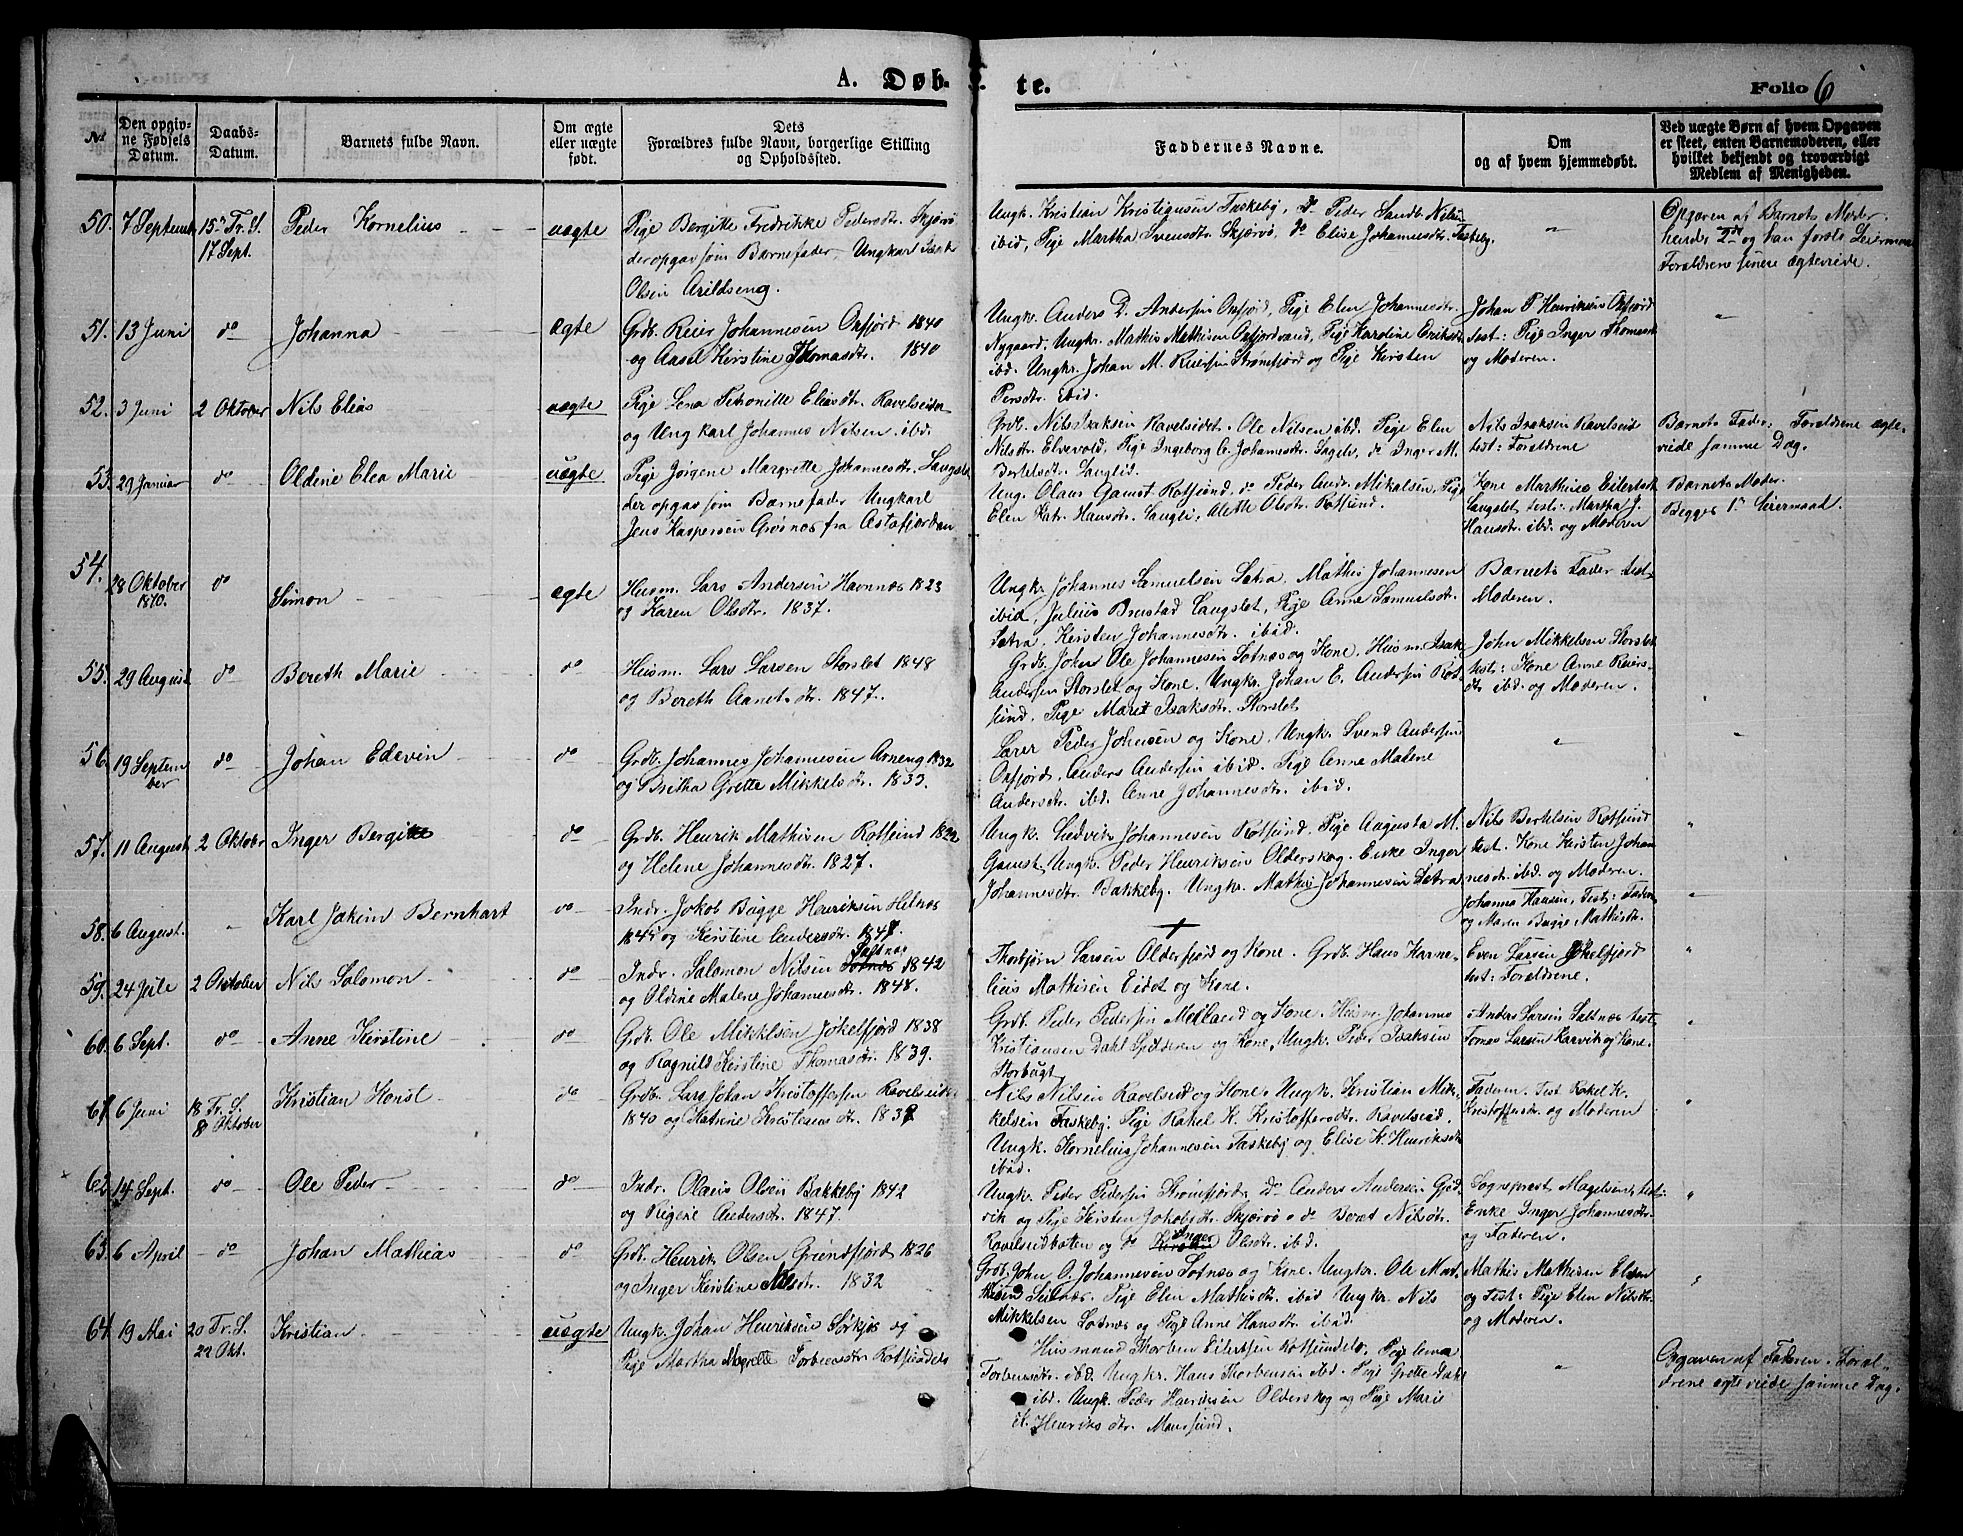 A. Døb- te.
Folio 6
№
Den opgiv-
ne Fødsels
Datum.
Daabs-
Datum.
Barnets fulde Navn.
Om ægte
eller uægte
født.
Dets
Forældres fulde Navn, borgerlige Stilling
og Opholdssted.
Faddernes Navne.
Om
og af hvem hjemmedøbt.
Ved uægte Børn af hvem Opgaven
er skeet, enten Barnemoderen, eller
hvilket bekjendt og troværdigt
Medlem af Menigheden.
50. 7 Septembr 15de Tr. S.
17 Sept.
Peder Kornelius
uægte
Pige Bergitte Fredrikke Pedersdtr. Skjærvø
der opgav som Barnefader, Ungkarl
Olsen Arildseng.
Ungk. Kristian Kristiansen Taskeby, do Peder Sandb. Nilsen
ibid, Pige Martha Svensdtr. Skjærvø, do Elise Johannesdtr. Taskeby.
"
Opgaven af Barnets Moder.
hendes 2de og han første Leiermaal
Forældrene senere ægteviede.
51. 13 Juni do Johanna
ægte
Grdb. Reier Johannesen Oxfjord 1840
og Kirstine Thomasdtr. 1840
Ungk. Anders D. Andersen Oxfjord, Pige Elen Johannesdtr.
Nygaard, Ungkr. Mathis Mathisen Oxfjordvand, Pige Karoline Eriksdtr.
ibd. Ungkr. Johan M. Reiersen Strømfjord og Pige Kirsten
Persdtr. ibid.
Johan P Henriksen Oxfjord
test: Pige Inger Thomasdtr
og Moderen.
"
52. 3 Juni 2 Oktober Nils Elias
uægte
Pige Lena Petronille Eliasdtr. Ravelseidet
og Ungkarl Johannes Nilsen ibd.
Grdb. Nils Isaksen Ravelseidet. Ole Nilsen ibd. Pige Elen
Nilsdtr. Elvevold, Pige Ingeborg C. Johannesdtr. do Inger M.
Bertelsdtr. Langlid.
Nils Isaksen Ravelseid
test: Forældrene
Barnets Fader: Forældrene ægte-
viede samme Dag.
53. 29 Januar do Oldine Elea Marie
uægte
Pige Jørgene Margrette Johannesdtr. Langslet
der opgav som Barnefader Ungkarl
Jens Kaspersen Grøsnes fra Astafjorden
Ung. Olaus Gamst Rotsund, do Peder Andr. Mikalsen, Pige
Elen Katr. Hansdtr. Langli, Alette Olsdtr. Rotsund.
Kone Marthine Eilertsdtr
Langslet, test: Martha J.
Hansdtr. ibd. og Moderen
Barnets Moder.
Begges 1ste Leiermaal.
54. 28 Oktober
1870.
do
Simon
ægte
Husm. Lars Andersen Havnnes 1823
og Karen Olsdtr. 1837.
Ungk. Johannes Samuelsen Sætra, Mathis Johannesen
ibid, Julius Brustad Langslet, Pige Anne Samuelsdtr.
Sætra, Kirsten Johannesdtr. ibid.
Barnets Fader test
Moderen.
55. 29 August do Bereth Marie
do
Husm. Lars Larsen Storslet 1848
og Bereth Aanetsdtr. 1847.
Grdb. John Ole Johannesen Sotnæs og Kone, Husm. Isak
Andersen Storslet og Kone. Ungkr. Johan E. Andersen Rot-
sund. Pige Maret Isaksdtr. Storslet
John Mikkelsen Storslet
test: Kone Anne Reiers-
dtr ibd. og Moderen.
"
56. 19 Septem-
ber
do Johan Edevin
do
Grdb. Johannes Johannesen Arneng 1832
og Britha Grette Mikkelsdtr. 1833.
Lærer Peder Johnsen og Kone. Ungkr. Svend Andersen
Oxfjord, Anders Andersen ibid. Pige Anne Malene
Andersdtr. ibd. Anne Johannesdtr. ibid.
"
"
57. 11 August 2 Oktobr Inger Bergitte
do
Grdb. Henrik Mathisen Rotsund 1822
og Helene Johannesdtr. 1827.
Ungk. Ludvik Johannesen Rotsund. Pige Augusta M.
Gamst, Ungkr. Peder Henriksen Olderskog. Enke Inger
Johannesdtr. Bakkeby. Ungkr. Mathis Johannesen Sætra
Nils Bertelsen Rotsund
test. Kone Kirsten Johan
nesdtr. ibd. og Moderen.
"
58. 6 August. " Karl Joakim Bernhart
do
Indr. Jakob Bugge Henriksen Helnæs
1845 og Kirstine Andersdtr. 1848.
+
Johanna Hansen, Test: Faderen
og Maren Bugge Mathisdtr.
"
59. 24 Juli 2 Oktober Nils Salomon
do
Saltnæs
Indr. Salomon Nilsen Sotnæs 1842
og Oldine Malene Johannesdtr. 1848.
Thorbjørn Larsen Olderfjord og Kone. Grdb. Hans Karne-
lius Mathisen Eidet og Kone.
Even Larsen Jøkelfjord
test: Forældrene.
"
60. 6 Sept. do Anne Kirstine
do
Grdb. Ole Mikkelsen Jøkelfjord 1838
og Ragnild Kirstine Thomasdtr. 1839.
Grdb. Peder Pedersen Melland og Kone. Husm. Johannes
Kristiansen Dahl Spilderen og Kone, Ungk. Peder Isaksen
Storbugt
Anders Larsen Saltnæs test,
Tomas Larsen Karvik og Kone.
"
61. 6 Juni 18 Tr. S.
8 Oktober
Kristian Honst
do
Grdb. Lars Johan Kristoffersen Ravelseid
1840 og Katrine Kristensdtr. 1837
Nils Nilsen Ravelseid og Kone. Ungk. Kristian Mik-
kelsen Taskeby. Pige Rakel K. Kristoffersdtr. Ravelseid.
Ungk. Kornelius Johannesen Taskeby og Elise K. Henriksdtr
ibid.
Faderen. Test Rakel K.
Kristoffersdtr. og Moderen
"
62. 14 Sept. do Ole Peder
do
Indr. Olaus Olsen Bakkeby 1842
og Andersdtr. 1847.
Ungk. Peder Pedersen Strømfjord, do Anders Andersen Gjø-
vik og Pige Kirsten Jakobsdtr. Skjærvø do Beret Nilsdtr.
Inger
Ravelseidbotten og do Kirsten Olsdtr. ibd.
Sogneprest Magelsen, test:
Enke Inger Johannesdtr.
og Faderen.
"
63. 6 April do Johan Mathias
do
Grdb. Henrik Olsen Grundfjord 1826
og Inger Kirstine Nilsdtr. 1832
Grdb. John O. Johannesen Sotnæs og Kone. Ungkr. Ole Mart
Seilnæs. Pige Elen Mathisdtr. ibid Ungkr. Nils
Mikkelsen Sotnæs og Pige Anne Hansdtr. ibid.
Mathis Mathisen Elven
og Test: Pige Elen Nilsdtr.
og Moderen.
"
64. 19 Mai 20 Tr. S.
22 Okt.
Kristian
uægte
Ungk. Johan Henriksen Sørkjos og
Pige Martha Magrette Torbensdtr. Rotsundelv
Husmand Thorben Eilertsen Rotsundelv, Pige Lena
Torbensdtr. ibd. Ungkr. Hans Thorbensen ibd. Pige Grette Dahl
ibd. Ungk. Peder Henriksen Olderskog og Pige Marie
K. Henriksdtr. Maursund.
"
Opgaven af Faderen. Foræl-
drene ægteviede samme Dag.